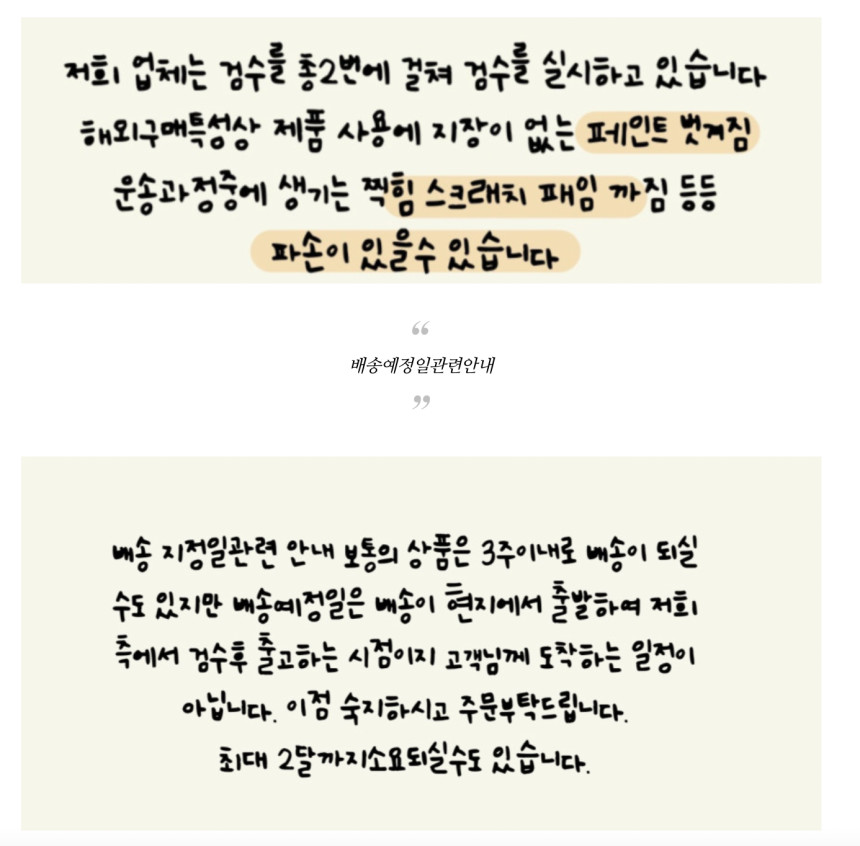 저희 업체는 검수를 총2번에 걸쳐 검수를 실시하고 있습니다
해외구매특성상 제품 사용에 지장이 없는 페인트 벗겨짐
운송과정중에 생기는 찍힘 스크래치 패임 까짐 등등
파손이 있을수 있습니다
“
배송예정일관련안내
”
배송 지정일관련 안내 보통의 상품은 3주이내로 배송이 되실
수도 있지만 배송예정일은 배송이 현지에서 출발하여 저희
측에서 검수후 출고하는 시점이지 고객님께 도착하는 일정이
아닙니다. 이점 숙지하시고 주문부탁드립니다.
최대 2달까지소요되실수도 있습니다.